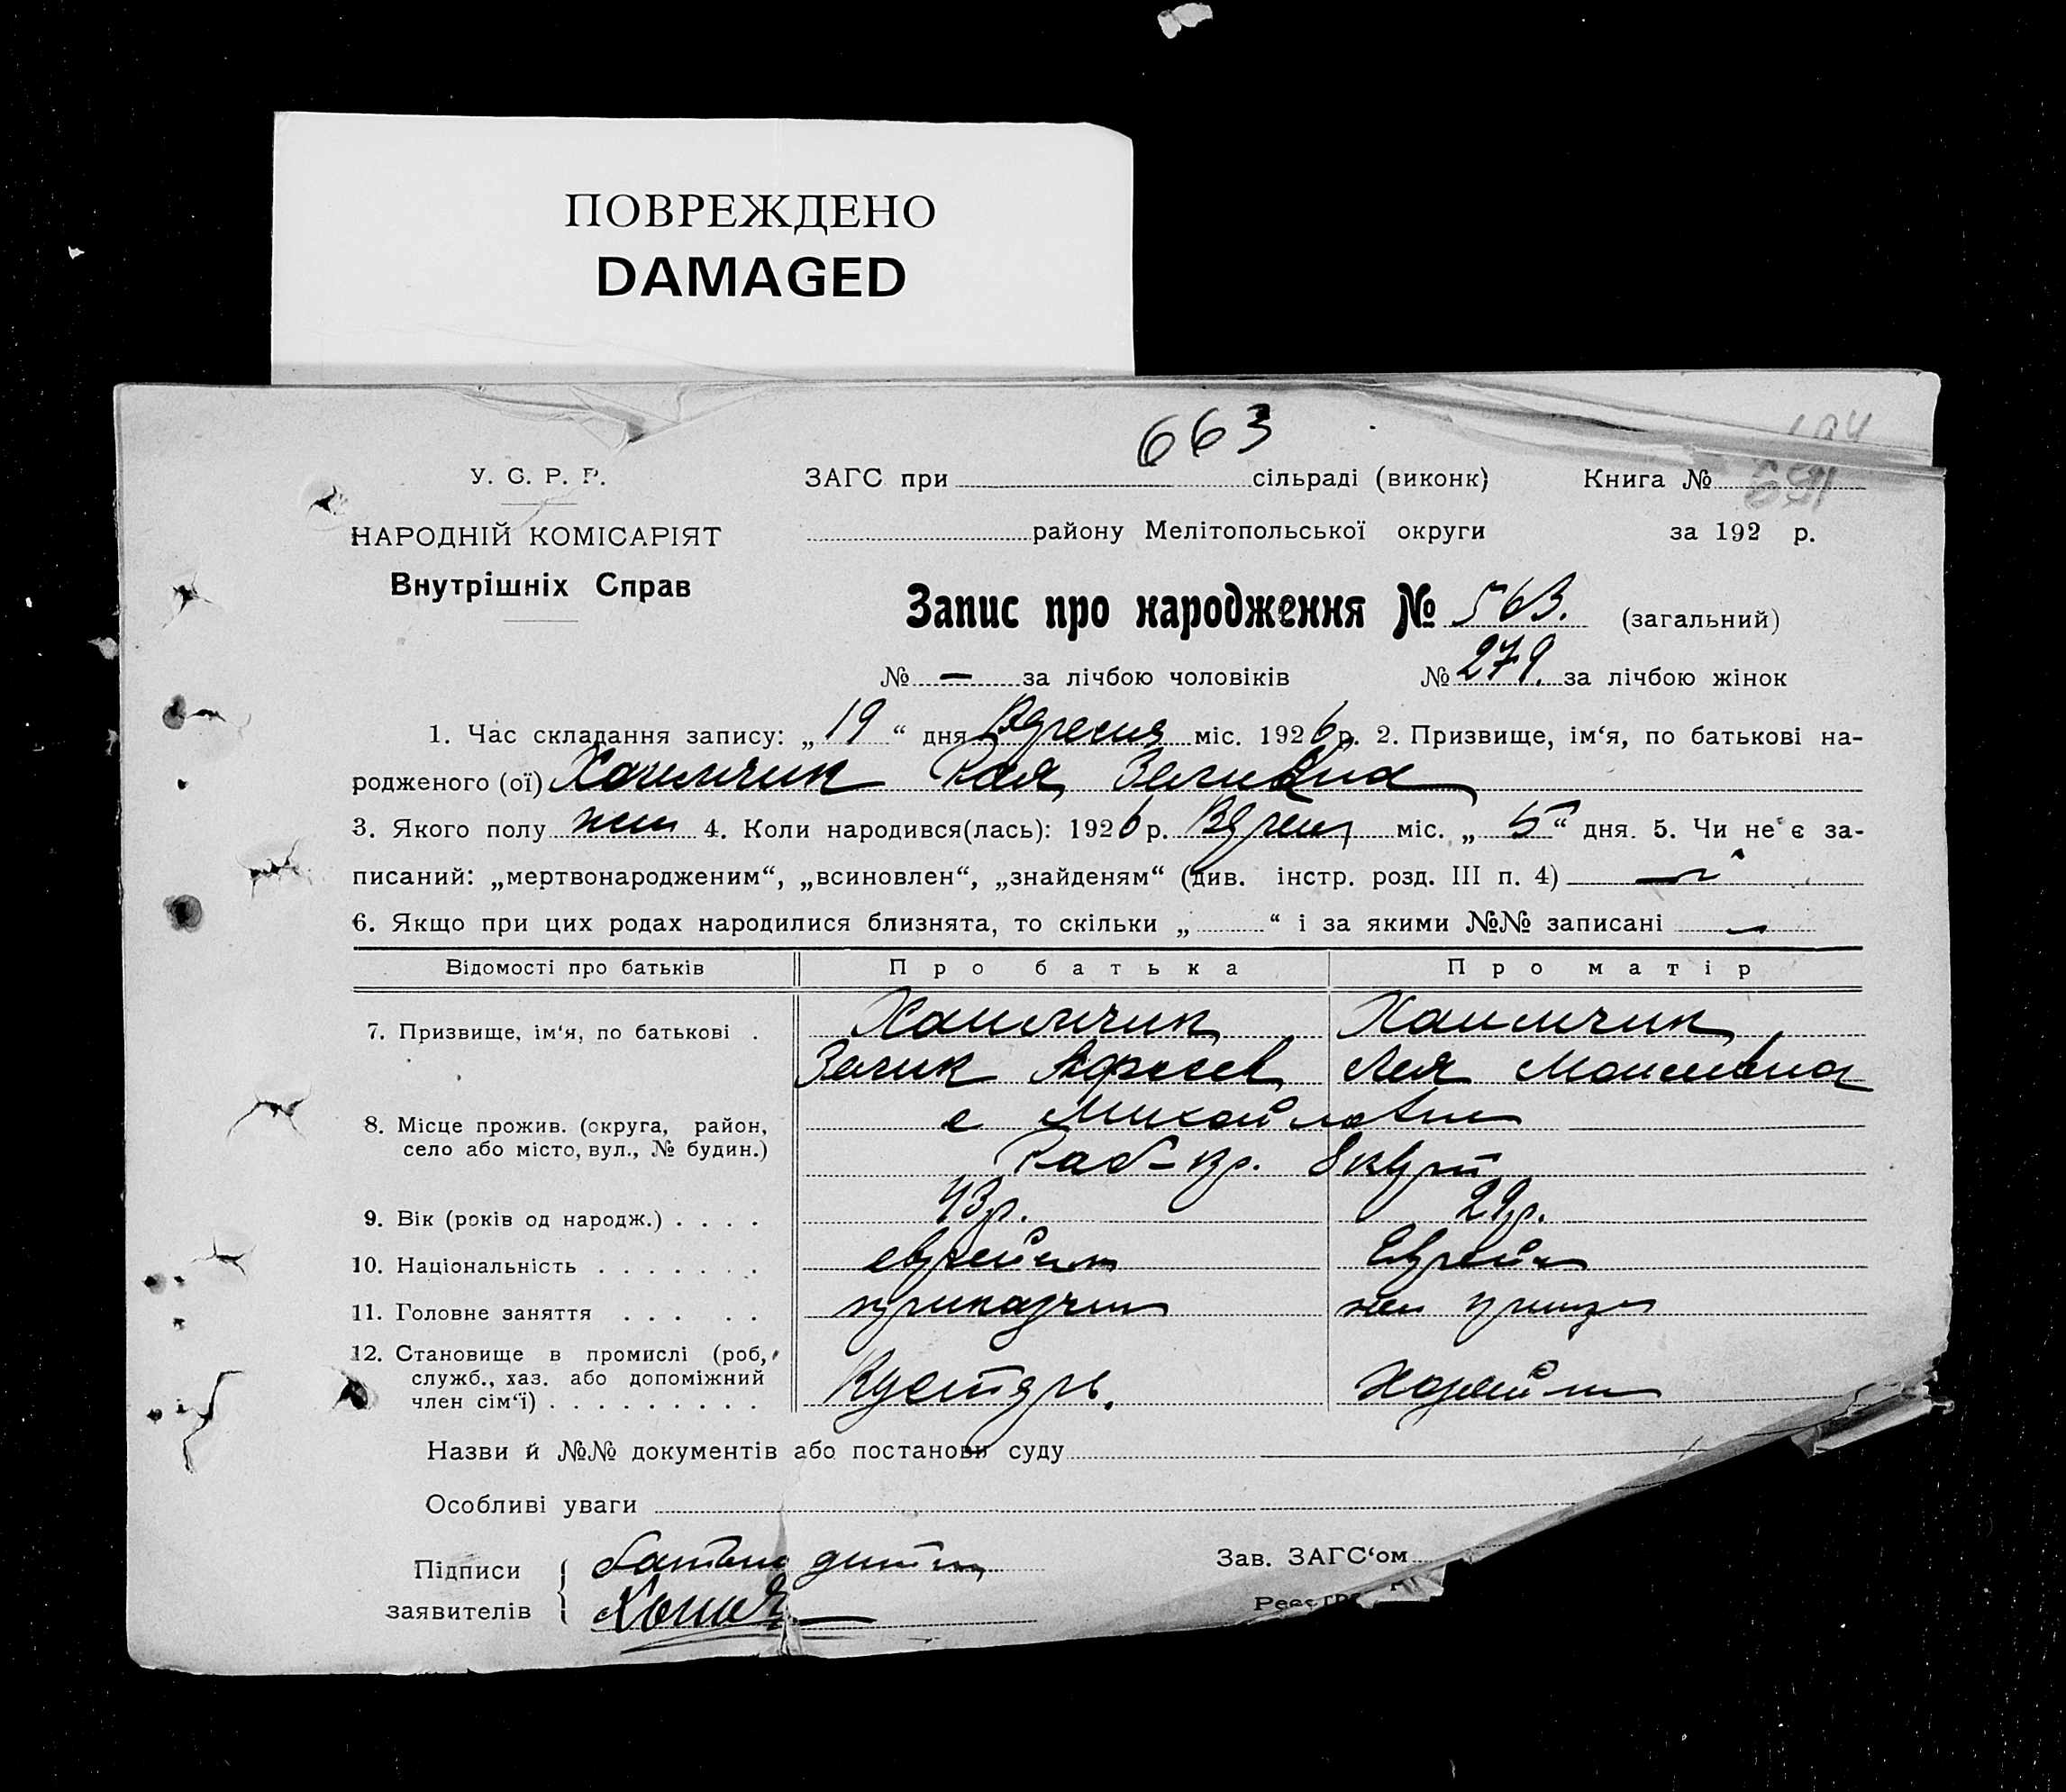 ПОВРЕЖДЕНО
DAMAGED
663
У. С. Р. Р.
ЗАГС при сільраді (виконк) Книга №
НАРОДНІЙ КОМІСАРІЯТ
району Мелітопольської округи за 192 р.
Внутрішніх Справ
Запис про народження № 563. (загальний)
№ — за лічбою чоловіків № 279. за лічбою жінок
1. Час складання запису: „19“ дня Вересня міс. 1926 р. 2. Призвище, ім‘я, по батькові на-
родженого (ої) Хаимчик Рая Зеликовна
3. Якого полу жен 4. Коли народився(лась): 1926 р. міс. „5“ дня. 5. Чи не є за-
писаний: „мертвонародженим“, „всиновлен“, „знайденям“ (див. інстр. розд. III п. 4)
6. Якщо при цих родах народилися близнята, то скільки „ “ і за якими №№ записані —
Відомості про батьків Про батька Про матір
7. Призвище, ім‘я, по батькові . Хаимчик Хаимчик
Зелик Лея Моисеевна
8. Місце прожив. (округа, район,
село або місто, вул., № будин.)
9. Вік (років од народж.) . . . . 43р. 29р.
10. Національність . . . . . . . еврей
11. Головне заняття . . . . .
12. Становище в промислі (роб,
служб., хаз. або допоміжний
член сім‘ї) . . . . . . . . . Кустарь. хозяйка
Назви й №№ документів або постанови суду
Особливі уваги
Підписи
заявителів
Зав. ЗАГС‘ом